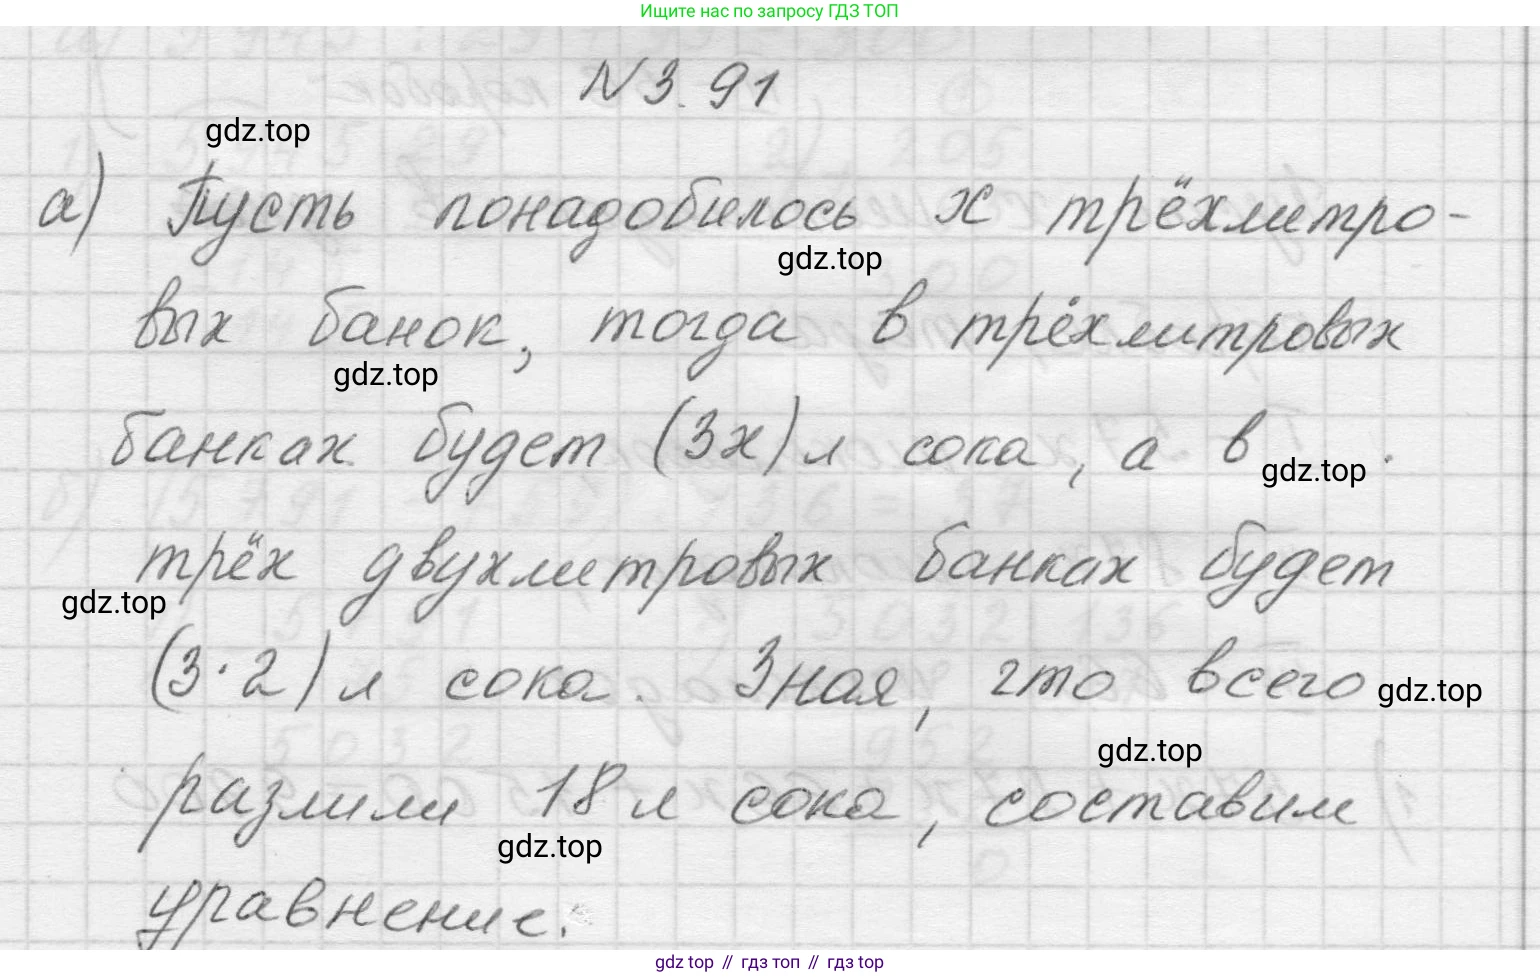 Ищите нас по запросу ГДЗ ТОП
№ 3.91
gdz.top
а) Пусть понадобилось x трёхлитро-
gdz.top
вых банок, тогда в трёхлитровых
gdz.top
банках будет (3x) л сока, а в
gdz.top
трёх двухлитровых банках будет
gdz.top
(3·2) л сока. Зная, что всего
gdz.top
gdz.top
разлили 18 л сока, составим
gdz.top
уравнение.
gdz top // гдз топ // гдз top